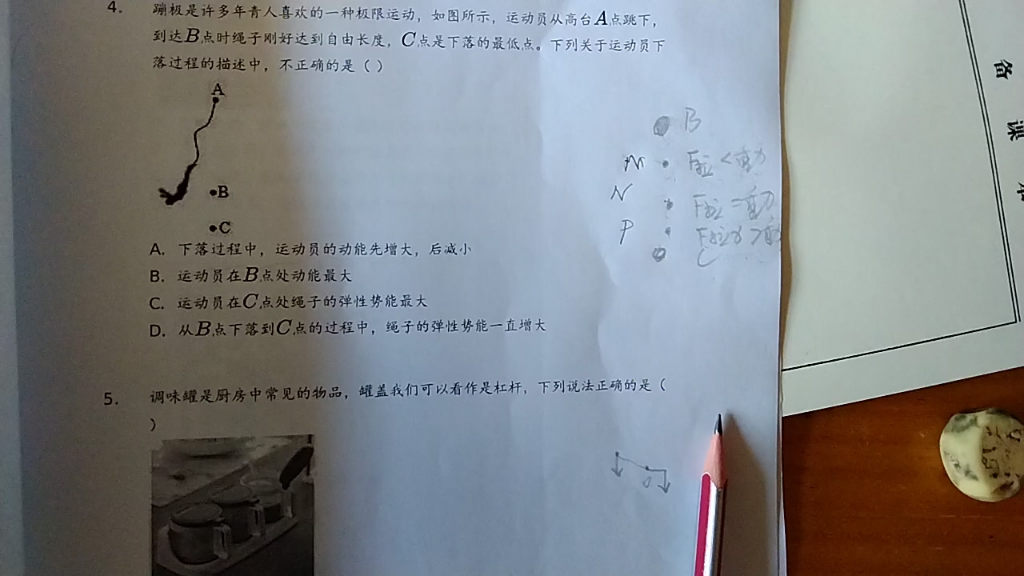 4. 蹦极是许多年青人喜欢的一种极限运动，如图所示，运动员从高台A点跳下，
到达B点时绳子刚好达到自由长度，C点是下落的最低点。下列关于运动员下
落过程的描述中，不正确的是（ ）
A
B
C
A. 下落过程中，运动员的动能先增大，后减小
B. 运动员在B点处动能最大
C. 运动员在C点处绳子的弹性势能最大
D. 从B点下落到C点的过程中，绳子的弹性势能一直增大
5. 调味罐是厨房中常见的物品，罐盖我们可以看作是杠杆，下列说法正确的是（
）
B
M F拉<重力
N
P
C
O
备课本